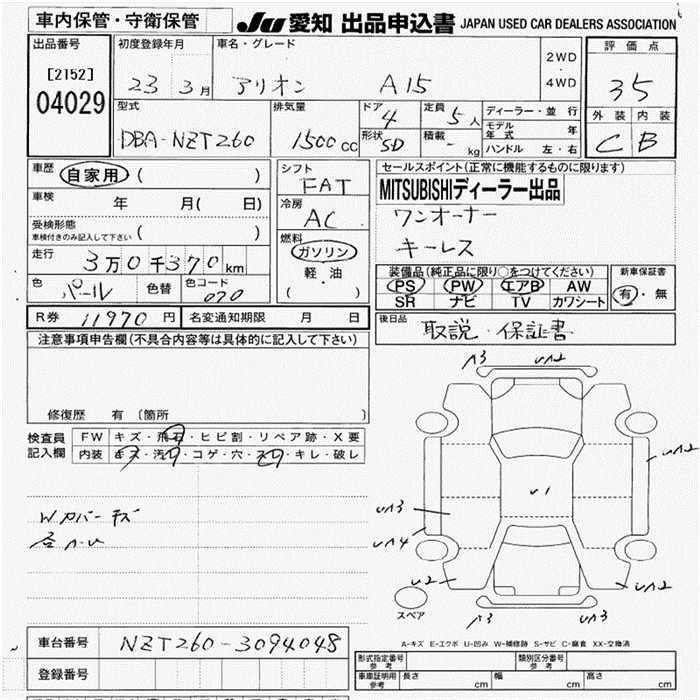 車内保管・守衛保管
JU 愛知 出品申込書 JAPAN USED CAR DEALERS ASSOCIATION
出品番号
[2152]
04029
初度登録年月
23 3月
車名・グレード
アリオン A15
2WD
・
4WD
評価点
35
外装 内装
C B
型式
DBA-NZT260
排気量
1500cc
ドア
4
形状
SD
定員
5人
積載
- kg
ディーラー・並行
モデル年式 年
ハンドル 左・右
車歴
自家用 ( )
車検
年 月( 日)
受検形態
車検付きのみ記入して下さい ( )
走行
3万0千370km
色
パール
色替
色コード
070
シフト
FAT
冷房
AC
燃料
ガソリン
軽・油
( )
セールスポイント(正常に機能するものに限ります)
MITSUBISHIディーラー出品
ワンオーナー
キーレス
装備品(純正品に限り○をつけてください)
PS PW エアB AW
SR ナビ TV カワシート
新車保証書
有・無
R券 11970円
名変通知期限 月 日
後日品
取説・保証書
注意事項申告欄(不具合内容等は具体的に記入して下さい)
修復歴 有 〔箇所
検査員
記入欄
FW キズ・飛石・ヒビ割・リペア跡・X要
内装 キズ・汚れ・コゲ・穴・スレ・キレ・破レ
Wカバーキズ
A3 UA2
UA2
U1
UA3
UA4
U2 UA2
スペア
A3 UA3
A-キズ E-エクボ U-凹み W-補修跡 S-サビ C-腐食 XX-交換済
車台番号 NZT260-3094048
登録番号
形式指定番号
参考
類別区分番号
参考
車庫証明用
参考
長さ cm 幅 cm 高さ cm